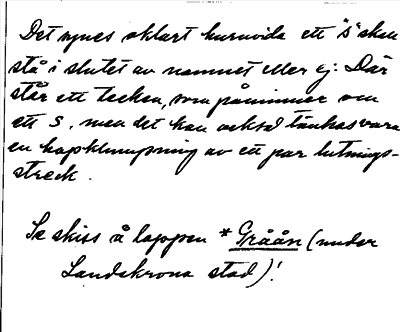 Det synes oklart huruvida ett "s" skall
stå i slutet av namnet eller ej: Där
står ett tecken, som påminner om
ett s, men det kan också tänkas vara
en hopklumpning av ett par lutnings-
streck.
Se skiss å lappen *Gråån (under
Landskrona stad)!